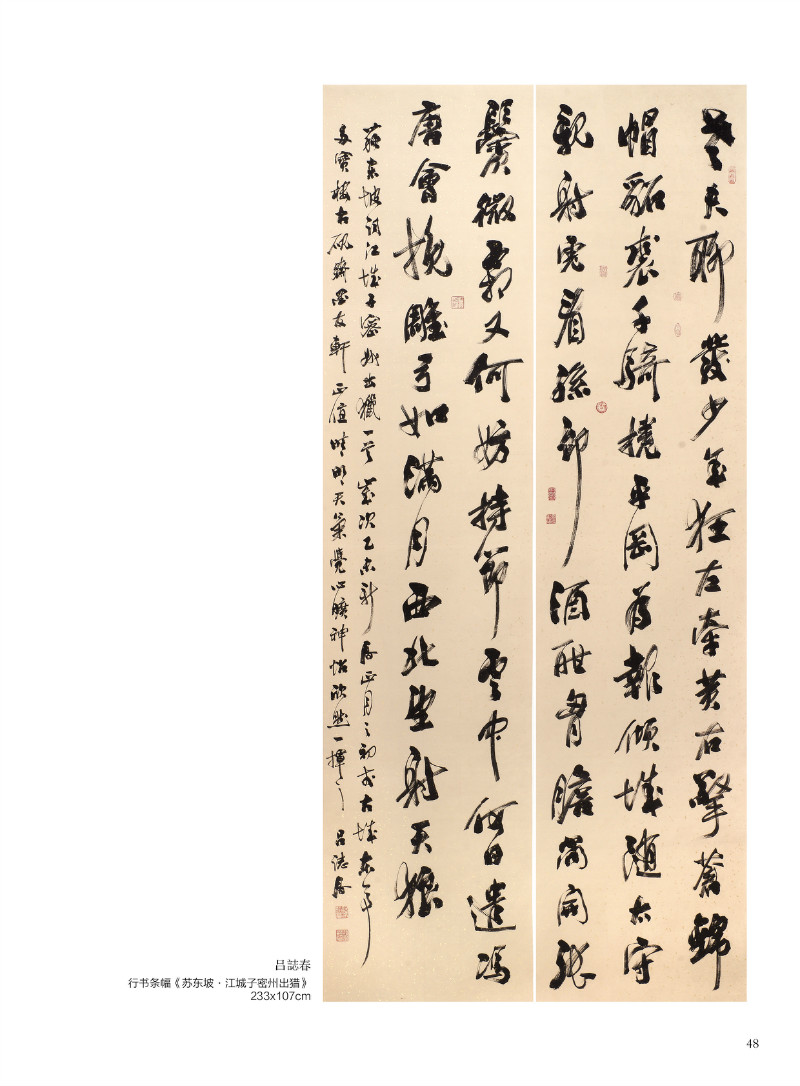 老夫聊發少年狂左牽黃右擎蒼錦
帽貂裘千騎捲平岡為報傾城隨太守
親射虎看孫郎酒酣胷膽尚開張
鬢微霜又何妨持節雲中何日遣馮
唐會挽雕弓如滿月西北望射天狼
蘇東坡詞江城子密州出獵一首歲次乙未新春正月之初於古城東牟
寶樓古硯齋友軒正值晴明天氣覺心曠神怡欣然一揮之 呂誌春
吕誌春
行书条幅《苏东坡·江城子密州出猎》
233x107cm
48